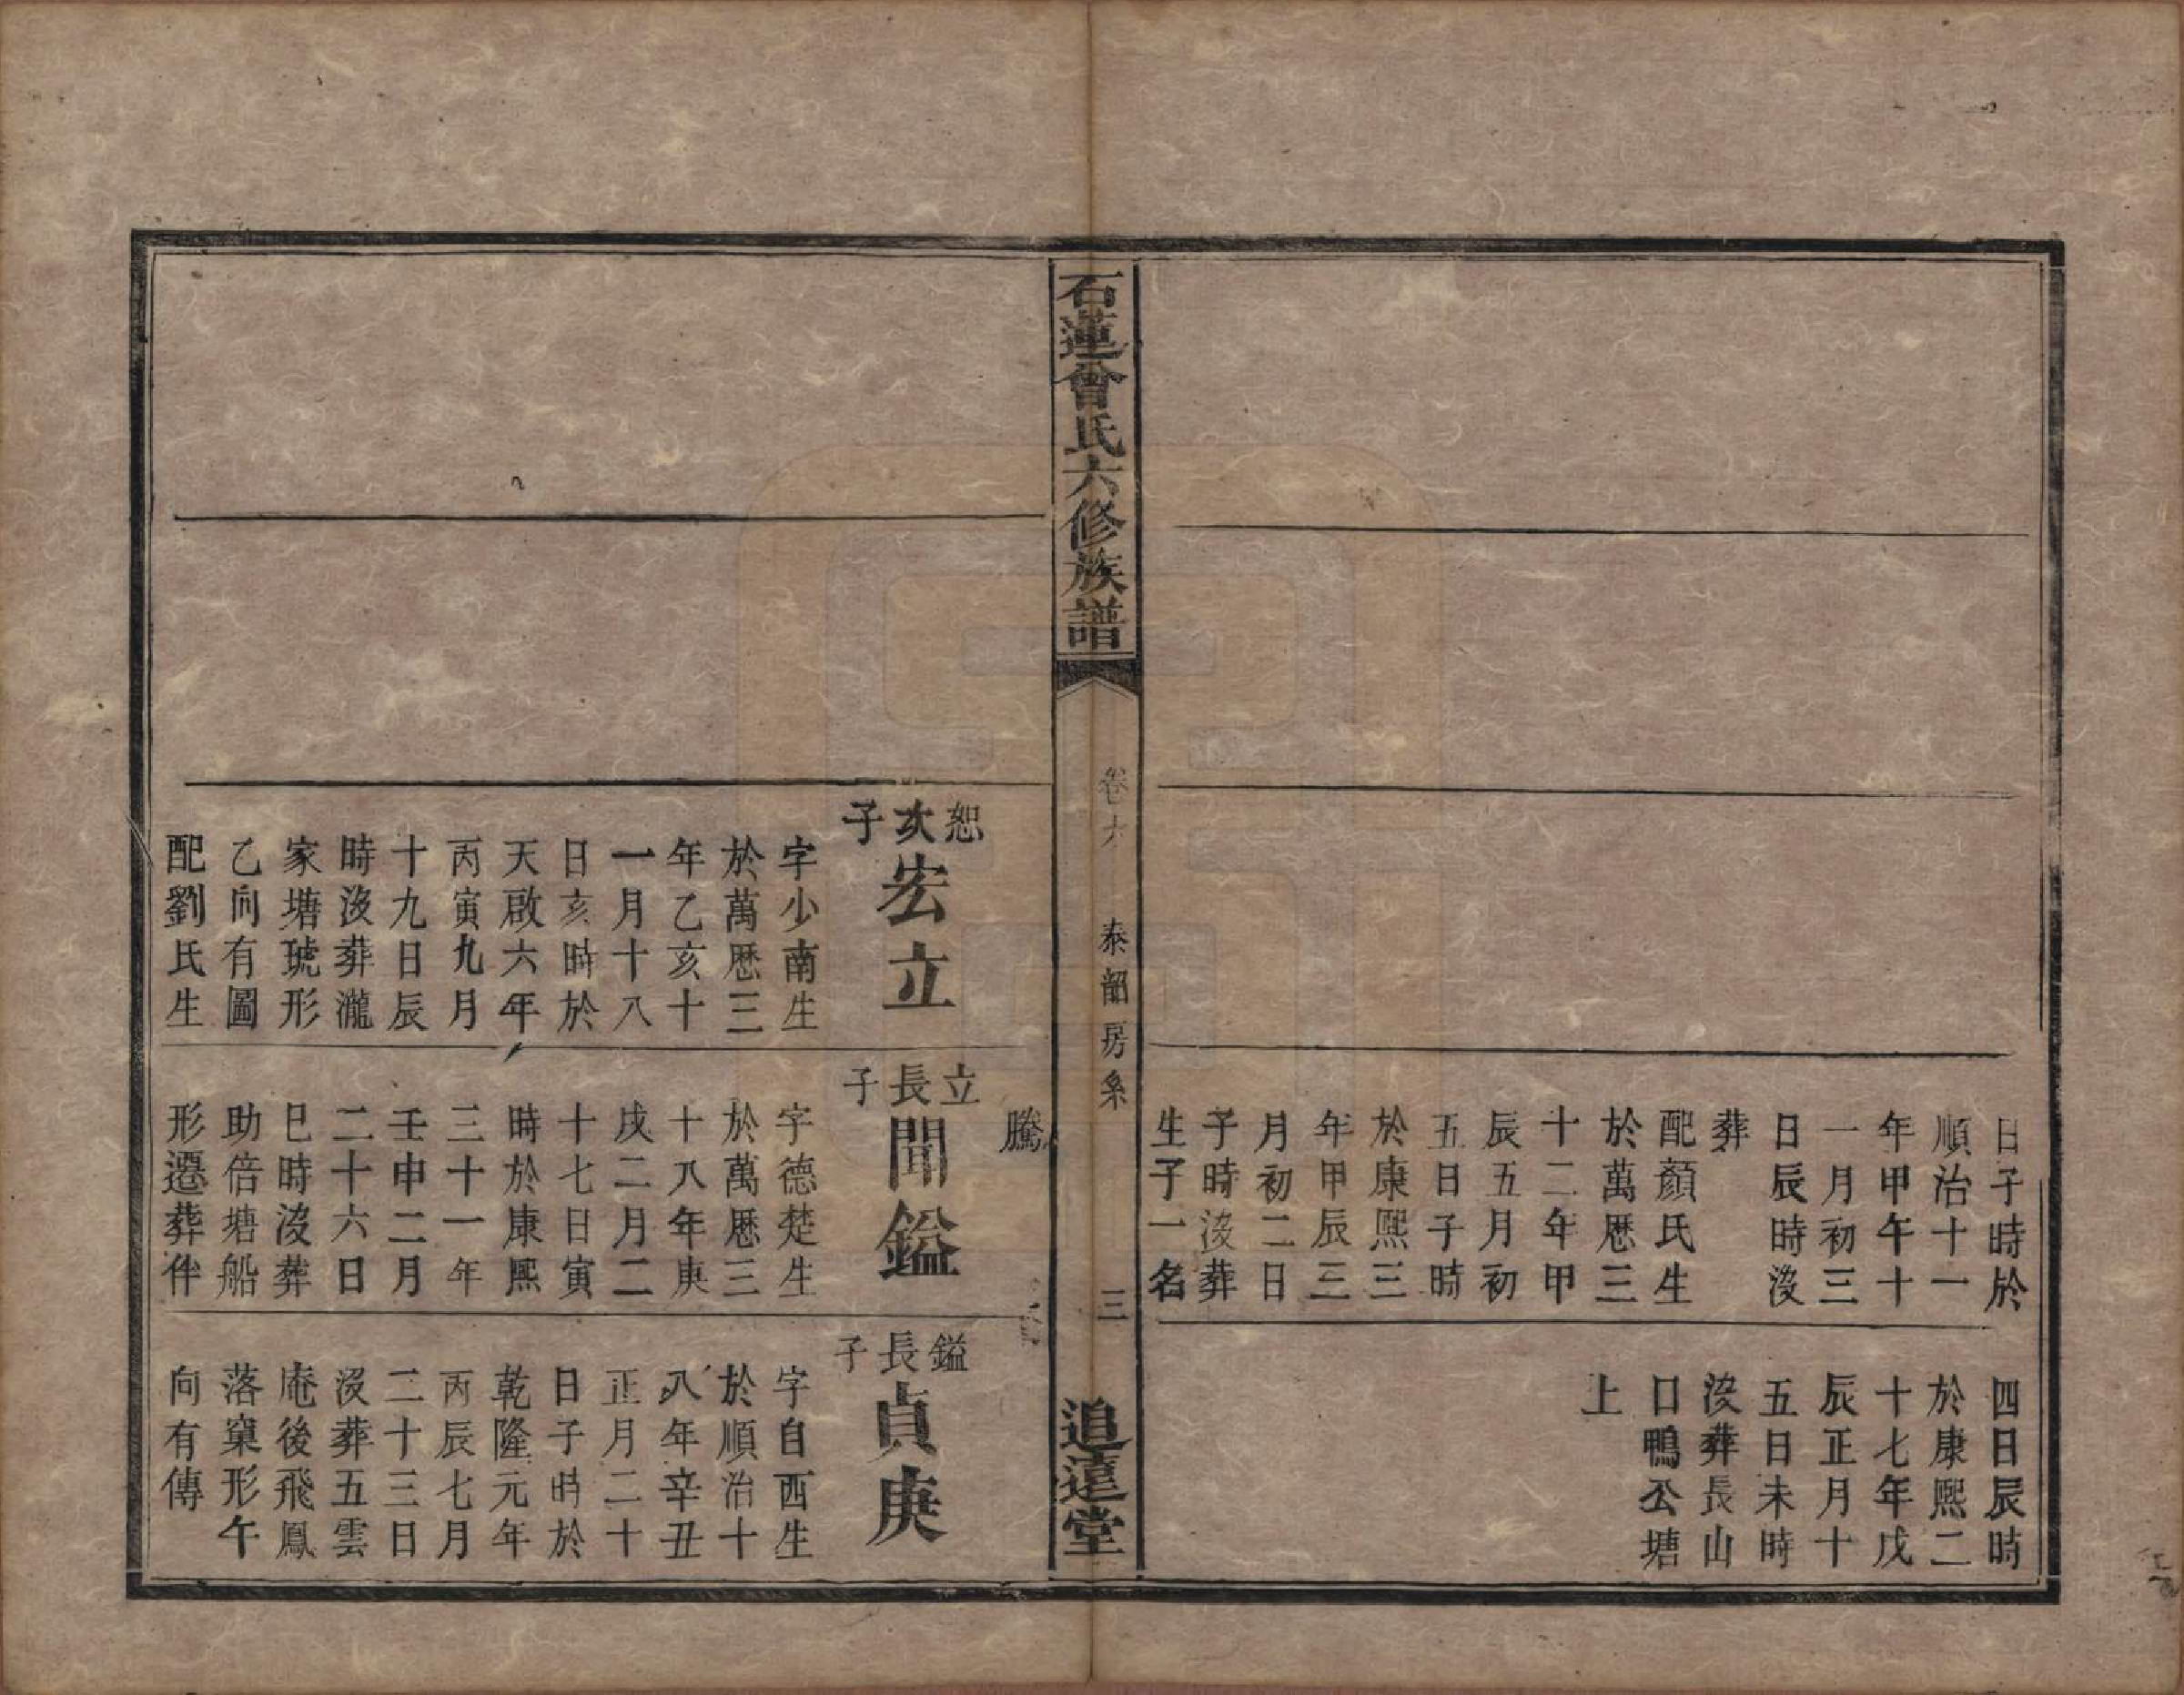 日子時於
順治十一
年甲午十
一月初三
日辰時沒
葬
配顏氏生
於萬歷三
十二年甲
辰五月初
五日子時
於康熙三
年甲辰三
月初二日
子時沒葬
生子一名
四日辰時
於康熙二
十七年戊
辰正月十
五日未時
沒葬長山
口鴨公塘
上
石蓮曾氏六修族譜
卷六
泰韶房系
三
追遠堂
騰
恕次子
宏立
字少南生
於萬歷三
年乙亥十
一月十八
日亥時於
天啟六年
丙寅九月
十九日辰
時沒葬瀧
家塘琥形
乙向有圖
配劉氏生
立長子
聞鎰
字德楚生
於萬歷三
十八年庚
戌二月二
十七日寅
時於康熙
三十一年
壬申二月
二十六日
巳時沒葬
助倍塘船
形遷葬伴
鎰長子
貞庚
字自西生
於順治十
八年辛丑
正月二十
日子時於
乾隆元年
丙辰七月
二十三日
沒葬五雲
庵後飛鳳
落窠形午
向有傳